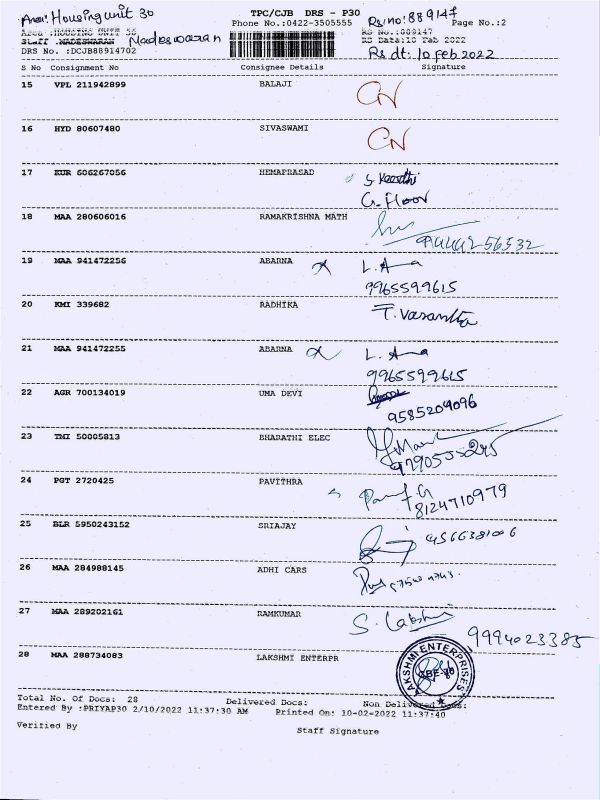 Area: Housing unit 30
TPC/CJB DRS - P30
Rs no: 889147
Phone No.:0422-3505555
Page No.:2
Area :HOUSING UNIT 30
RS No.:889147
Staff :MADESWARAN Madeswaran
RS Date:10 Feb 2022
DRS No. :DCJB88914702
Rs dt: 10 Feb 2022
S No Consignment No Consignee Details Signature
15 VPL 211942899 BALAJI CN
16 HYD 80607480 SIVASWAMI CN
17 KUR 606267056 HEMAPRASAD S. Keerthi
G. Floor
18 MAA 280606016 RAMAKRISHNA MATH
9444256532
19 MAA 941472256 ABARNA L. A
9965599615
20 KMI 339682 RADHIKA T. Vasantha
21 MAA 941472255 ABARNA L. A
9965599615
22 AGR 700134019 UMA DEVI
9585209096
23 TMI 50005813 BHARATHI ELEC
24 PGT 2720425 PAVITHRA
8124710979
25 BLR 5950243152 SRIAJAY
26 MAA 284988145 ADHI CARS
27 MAA 289202161 RAMKUMAR S. Lakshmi
9994023385
28 MAA 288734083 LAKSHMI ENTERPR
LAKSHMI ENTERPRISES
CBE-30
Total No. Of Docs: 28 Delivered Docs: Non Delivered Docs:
Entered By :PRIYAP30 2/10/2022 11:37:30 AM Printed On: 10-02-2022 11:37:40
Verified By
Staff Signature